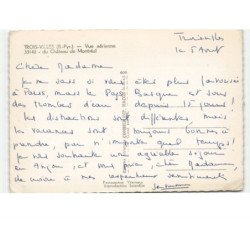 TROIS-VILLES (B.-Pyr.) - Vue aérienne
du Château de Montréal
Trois-Villes
le 5 Août
Chère Madame
Je ne sais si vous êtes plus favorisée
à Paris, mais le Pays Basque est sous
des trombes d'eau depuis 15 jours!
les distractions sont différentes, mais
les vacances sont toujours bonnes à
prendre, par n'importe quel temps!
Je vous souhaite un agréable séjour
en Anjou, et vous prie, chère Madame,
de croire à mes respectueux sentiments